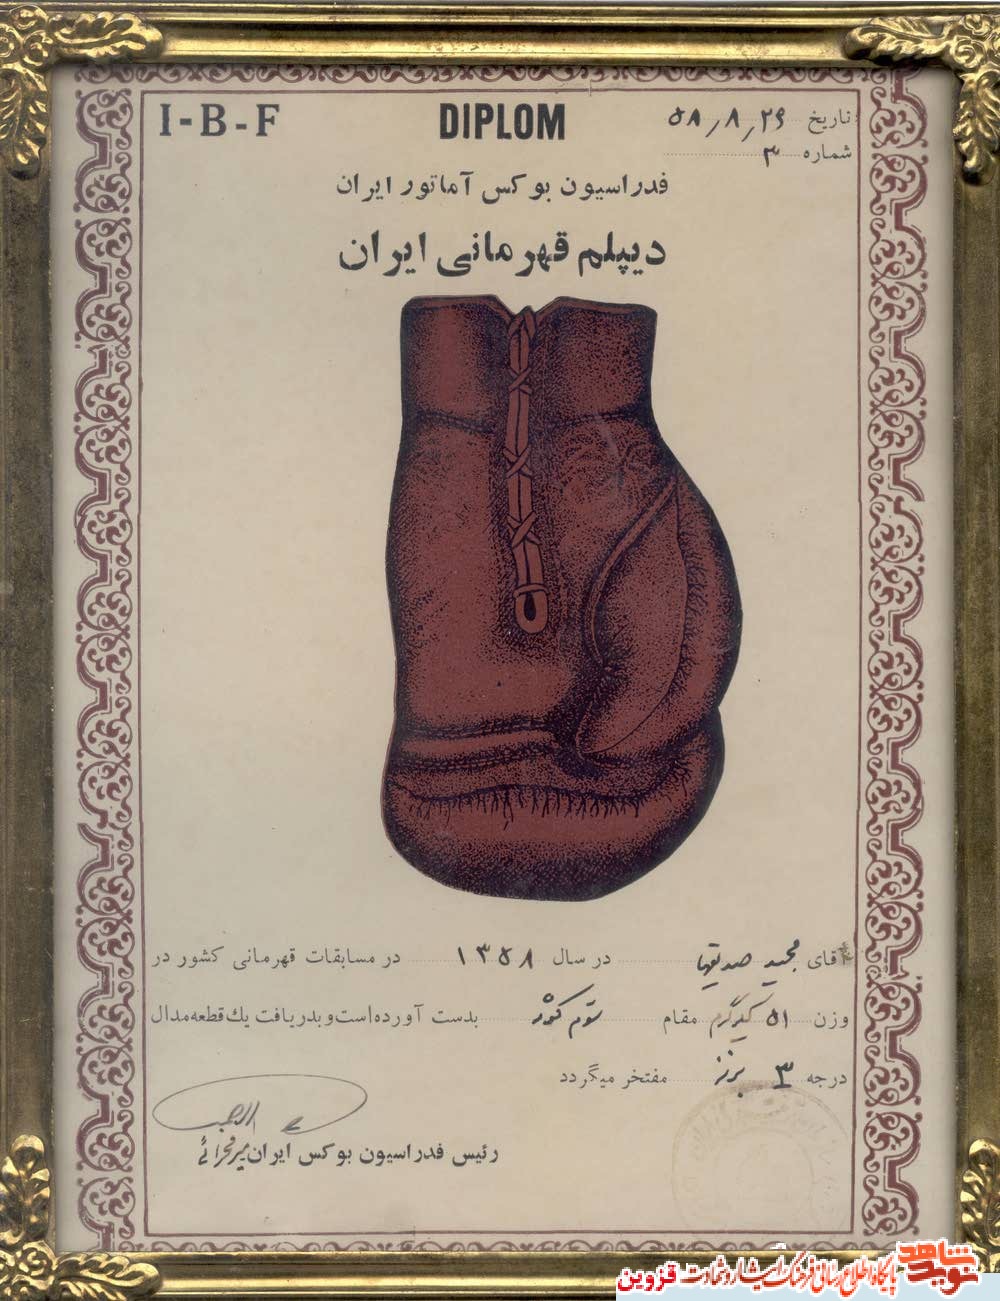 I-B-F
DIPLOM
تاریخ ۵۸٫۸٫۲۹
شماره ۳
فدراسیون بوکس آماتور ایران
دیپلم قهرمانی ایران
آقای مجید صدیقها در سال ۱۳۵۸ در مسابقات قهرمانی کشور در
وزن ۵۱ کیلوگرم مقام سوم کشور بدست آورده‌است و بدریافت یک قطعه مدال
درجه ۳ برنز مفتخر میگردد
رئیس فدراسیون بوکس ایران میرفخرائی
نوید شاهد
پایگاه اطلاع رسانی فرهنگ ایثار و شهادت قزوین